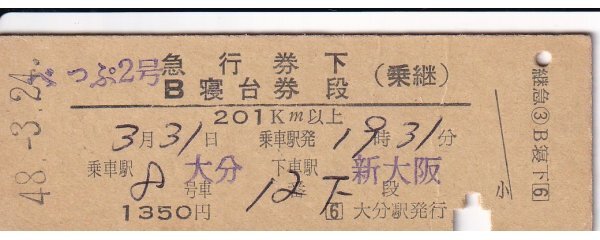 48.-3.24
べっぷ2号
急行券 下
B寝台券 段 (乗継)
201Km以上
3月31日 乗車駅発 19時31分
乗車駅 大分 下車駅 新大阪
8号車 12番 下段
1350円 6 大分駅発行
継急③B寝下6
小